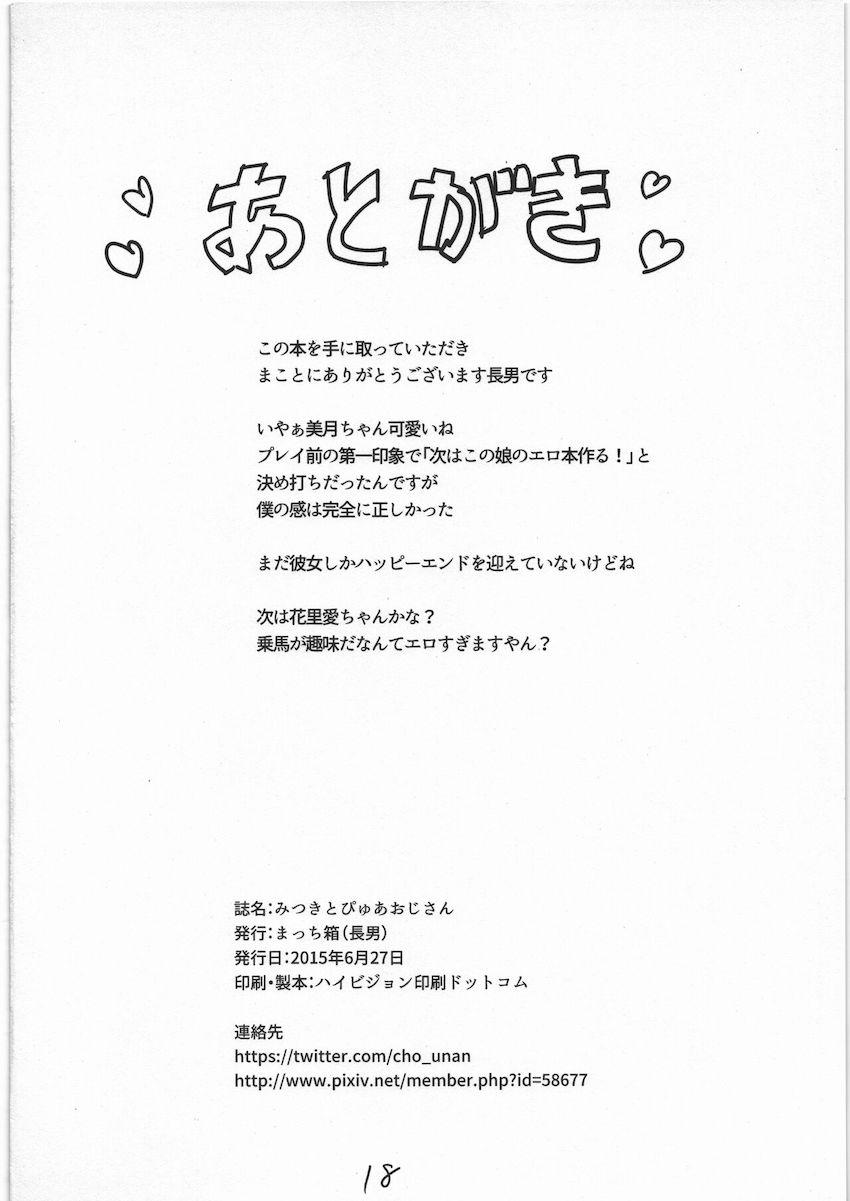 あとがき
この本を手に取っていただき
まことにありがとうございます長男です
いやぁ美月ちゃん可愛いね
プレイ前の第一印象で「次はこの娘のエロ本作る！」と
決め打ちだったんですが
僕の感は完全に正しかった
まだ彼女しかハッピーエンドを迎えていないけどね
次は花里愛ちゃんかな？
乗馬が趣味だなんてエロすぎますやん？
誌名：みつきとぴゅあおじさん
発行：まっち箱（長男）
発行日：2015年6月27日
印刷・製本：ハイビジョン印刷ドットコム
連絡先
https://twitter.com/cho_unan
http://www.pixiv.net/member.php?id=58677
18